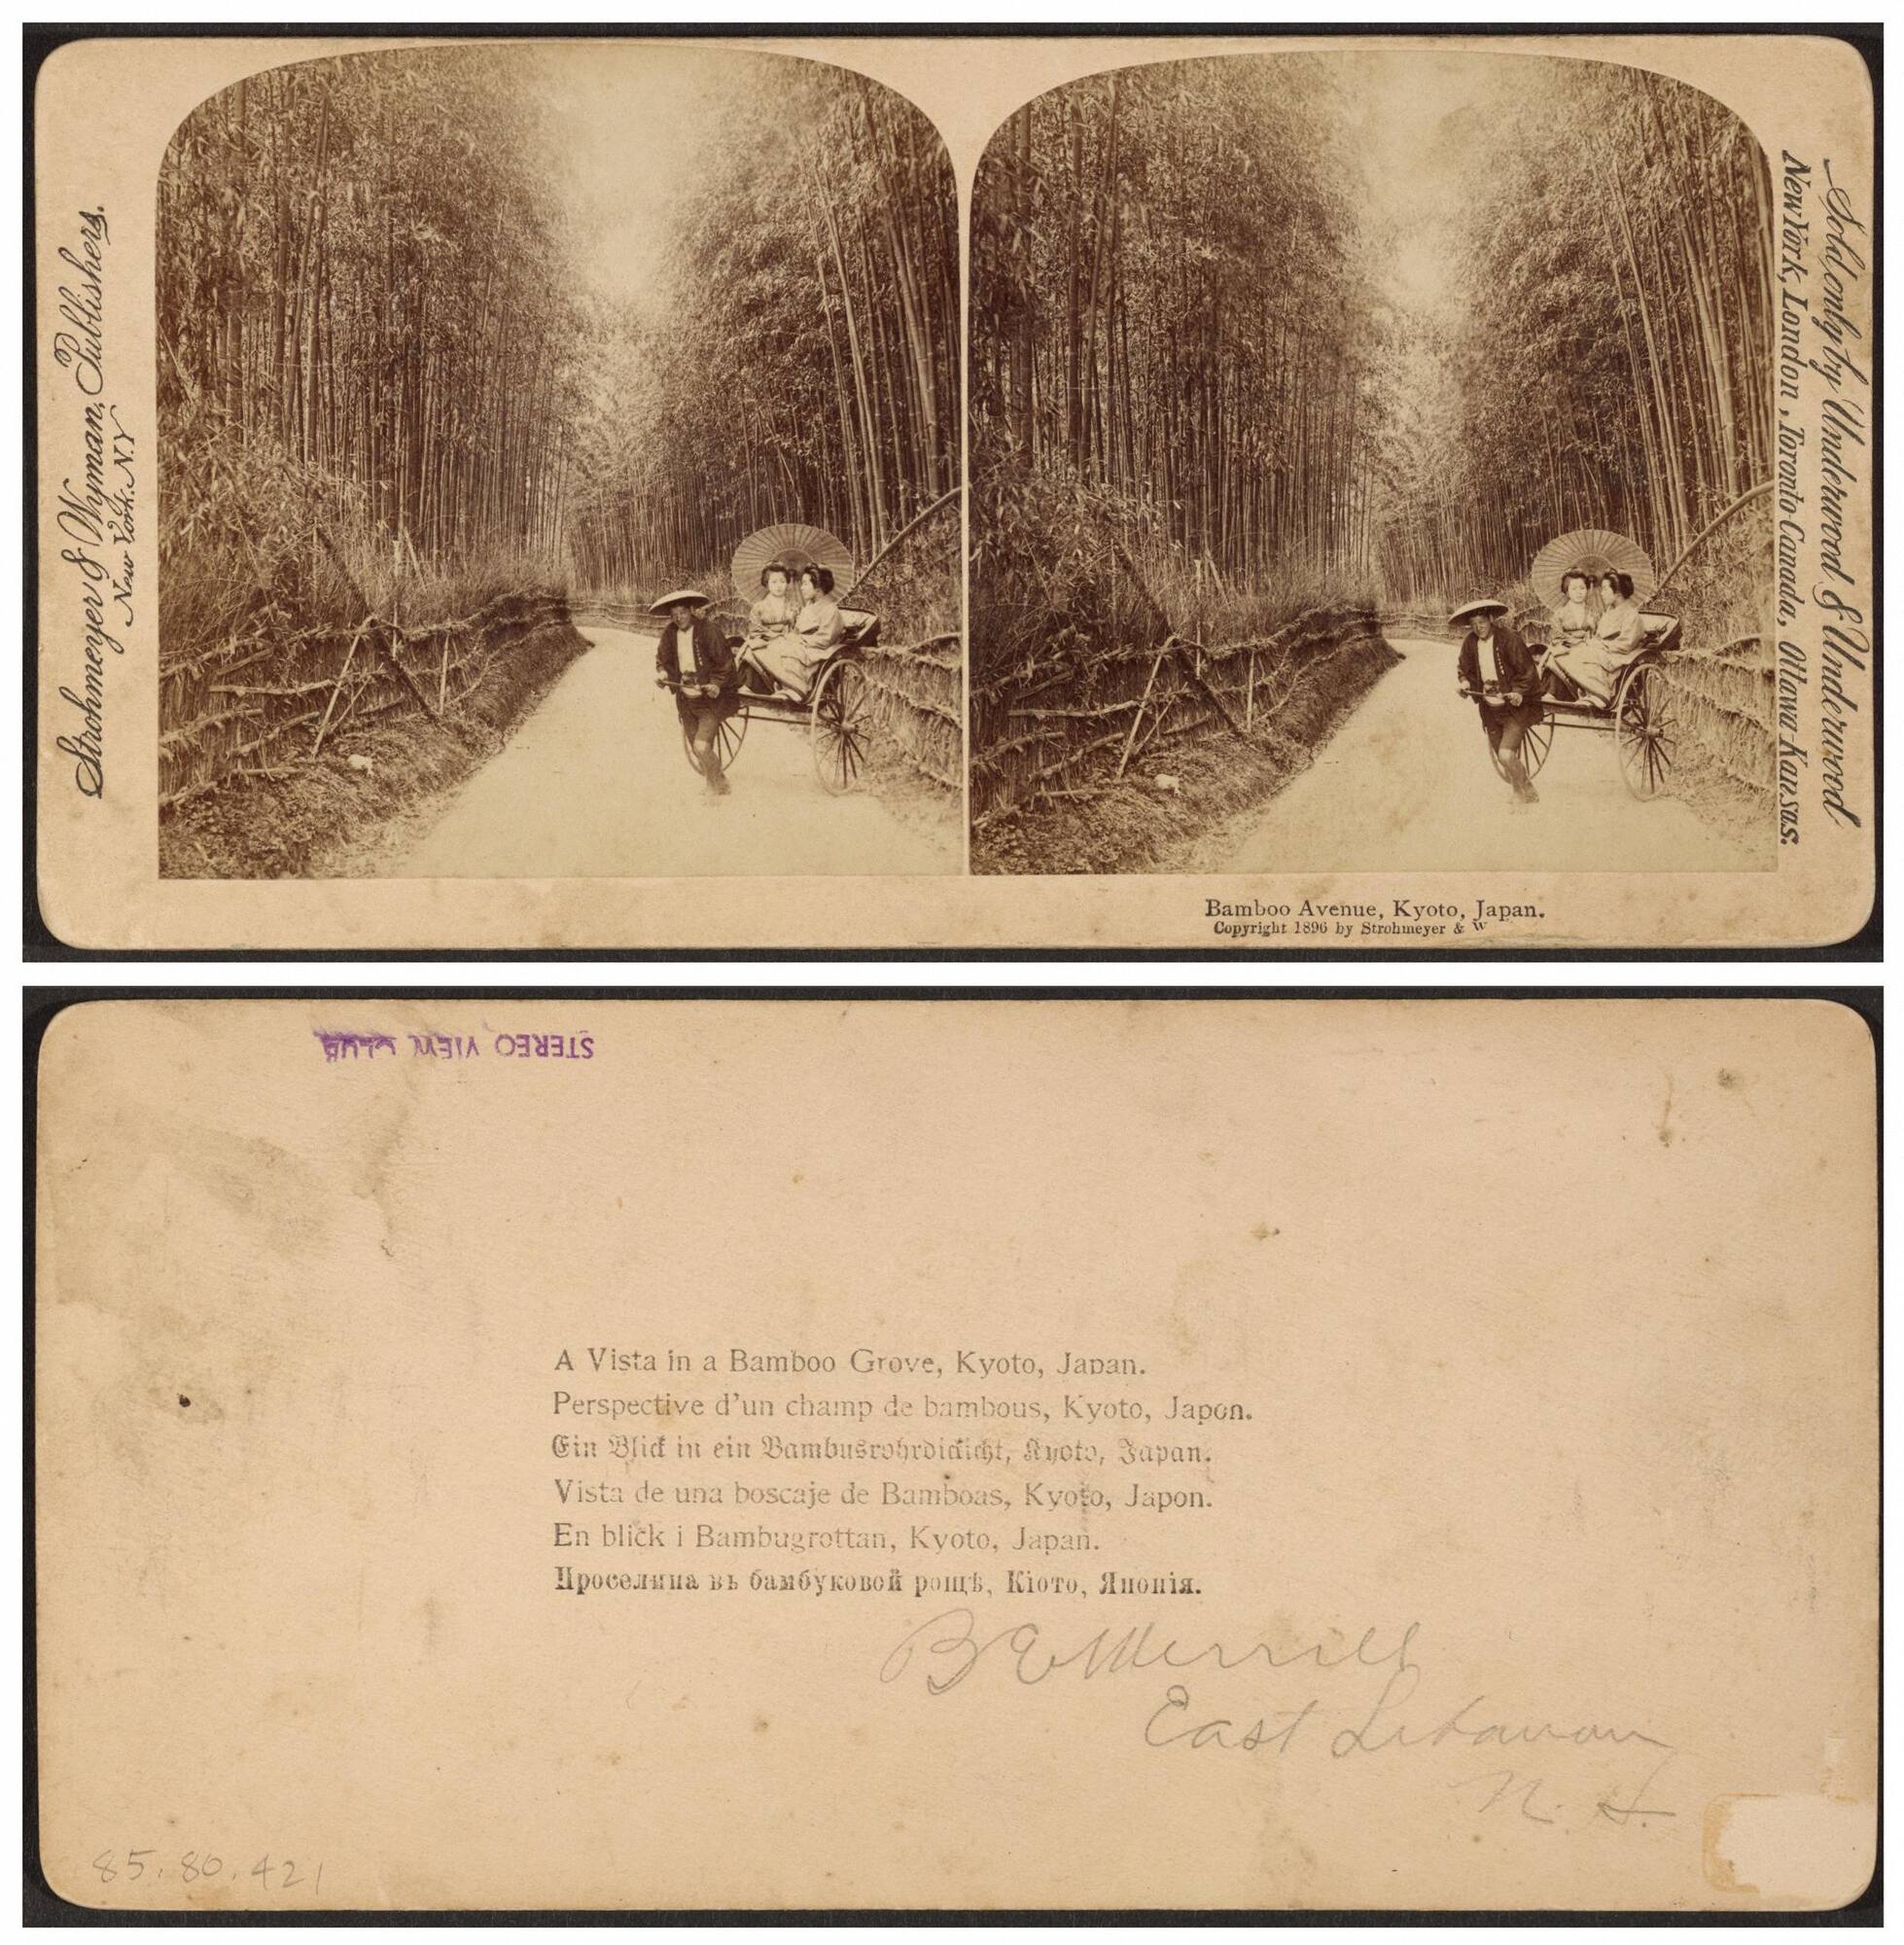 Strohmeyer & Wyman, Publishers.
New York. N.Y
Sold only by Underwood & Underwood
New York, London, Toronto Canada, Ottawa Kansas.
Bamboo Avenue, Kyoto, Japan.
Copyright 1896 by Strohmeyer & W
STEREO VIEW CLUB
A Vista in a Bamboo Grove, Kyoto, Japan.
Perspective d'un champ de bambous, Kyoto, Japon.
Ein Blick in ein Bambusrohrdickicht, Kyoto, Japan.
Vista de una boscaje de Bamboas, Kyoto, Japon.
En blick i Bambugrottan, Kyoto, Japan.
Проселина въ бамбуковой рощѣ, Кіото, Японія.
B E Merrill
East Lebanon
N. H.
85.80.421